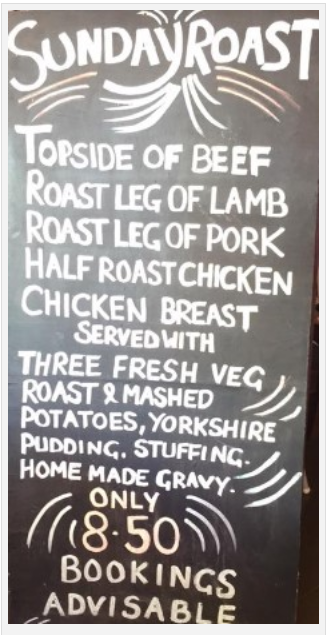 SUNDAY ROAST
TOPSIDE OF BEEF
ROAST LEG OF LAMB
ROAST LEG OF PORK
HALF ROAST CHICKEN
CHICKEN BREAST
SERVED WITH
THREE FRESH VEG
ROAST & MASHED
POTATOES, YORKSHIRE
PUDDING. STUFFING.
HOME MADE GRAVY.
ONLY
8.50
BOOKINGS
ADVISABLE